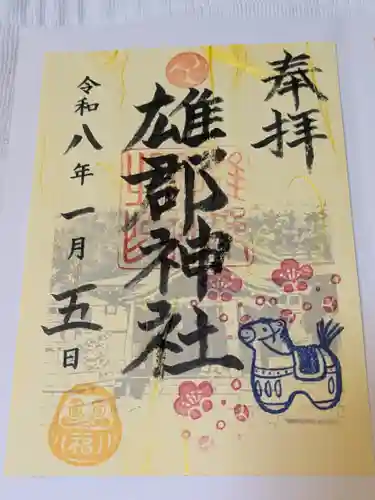 奉拝
雄郡神社
令和八年一月五日
福